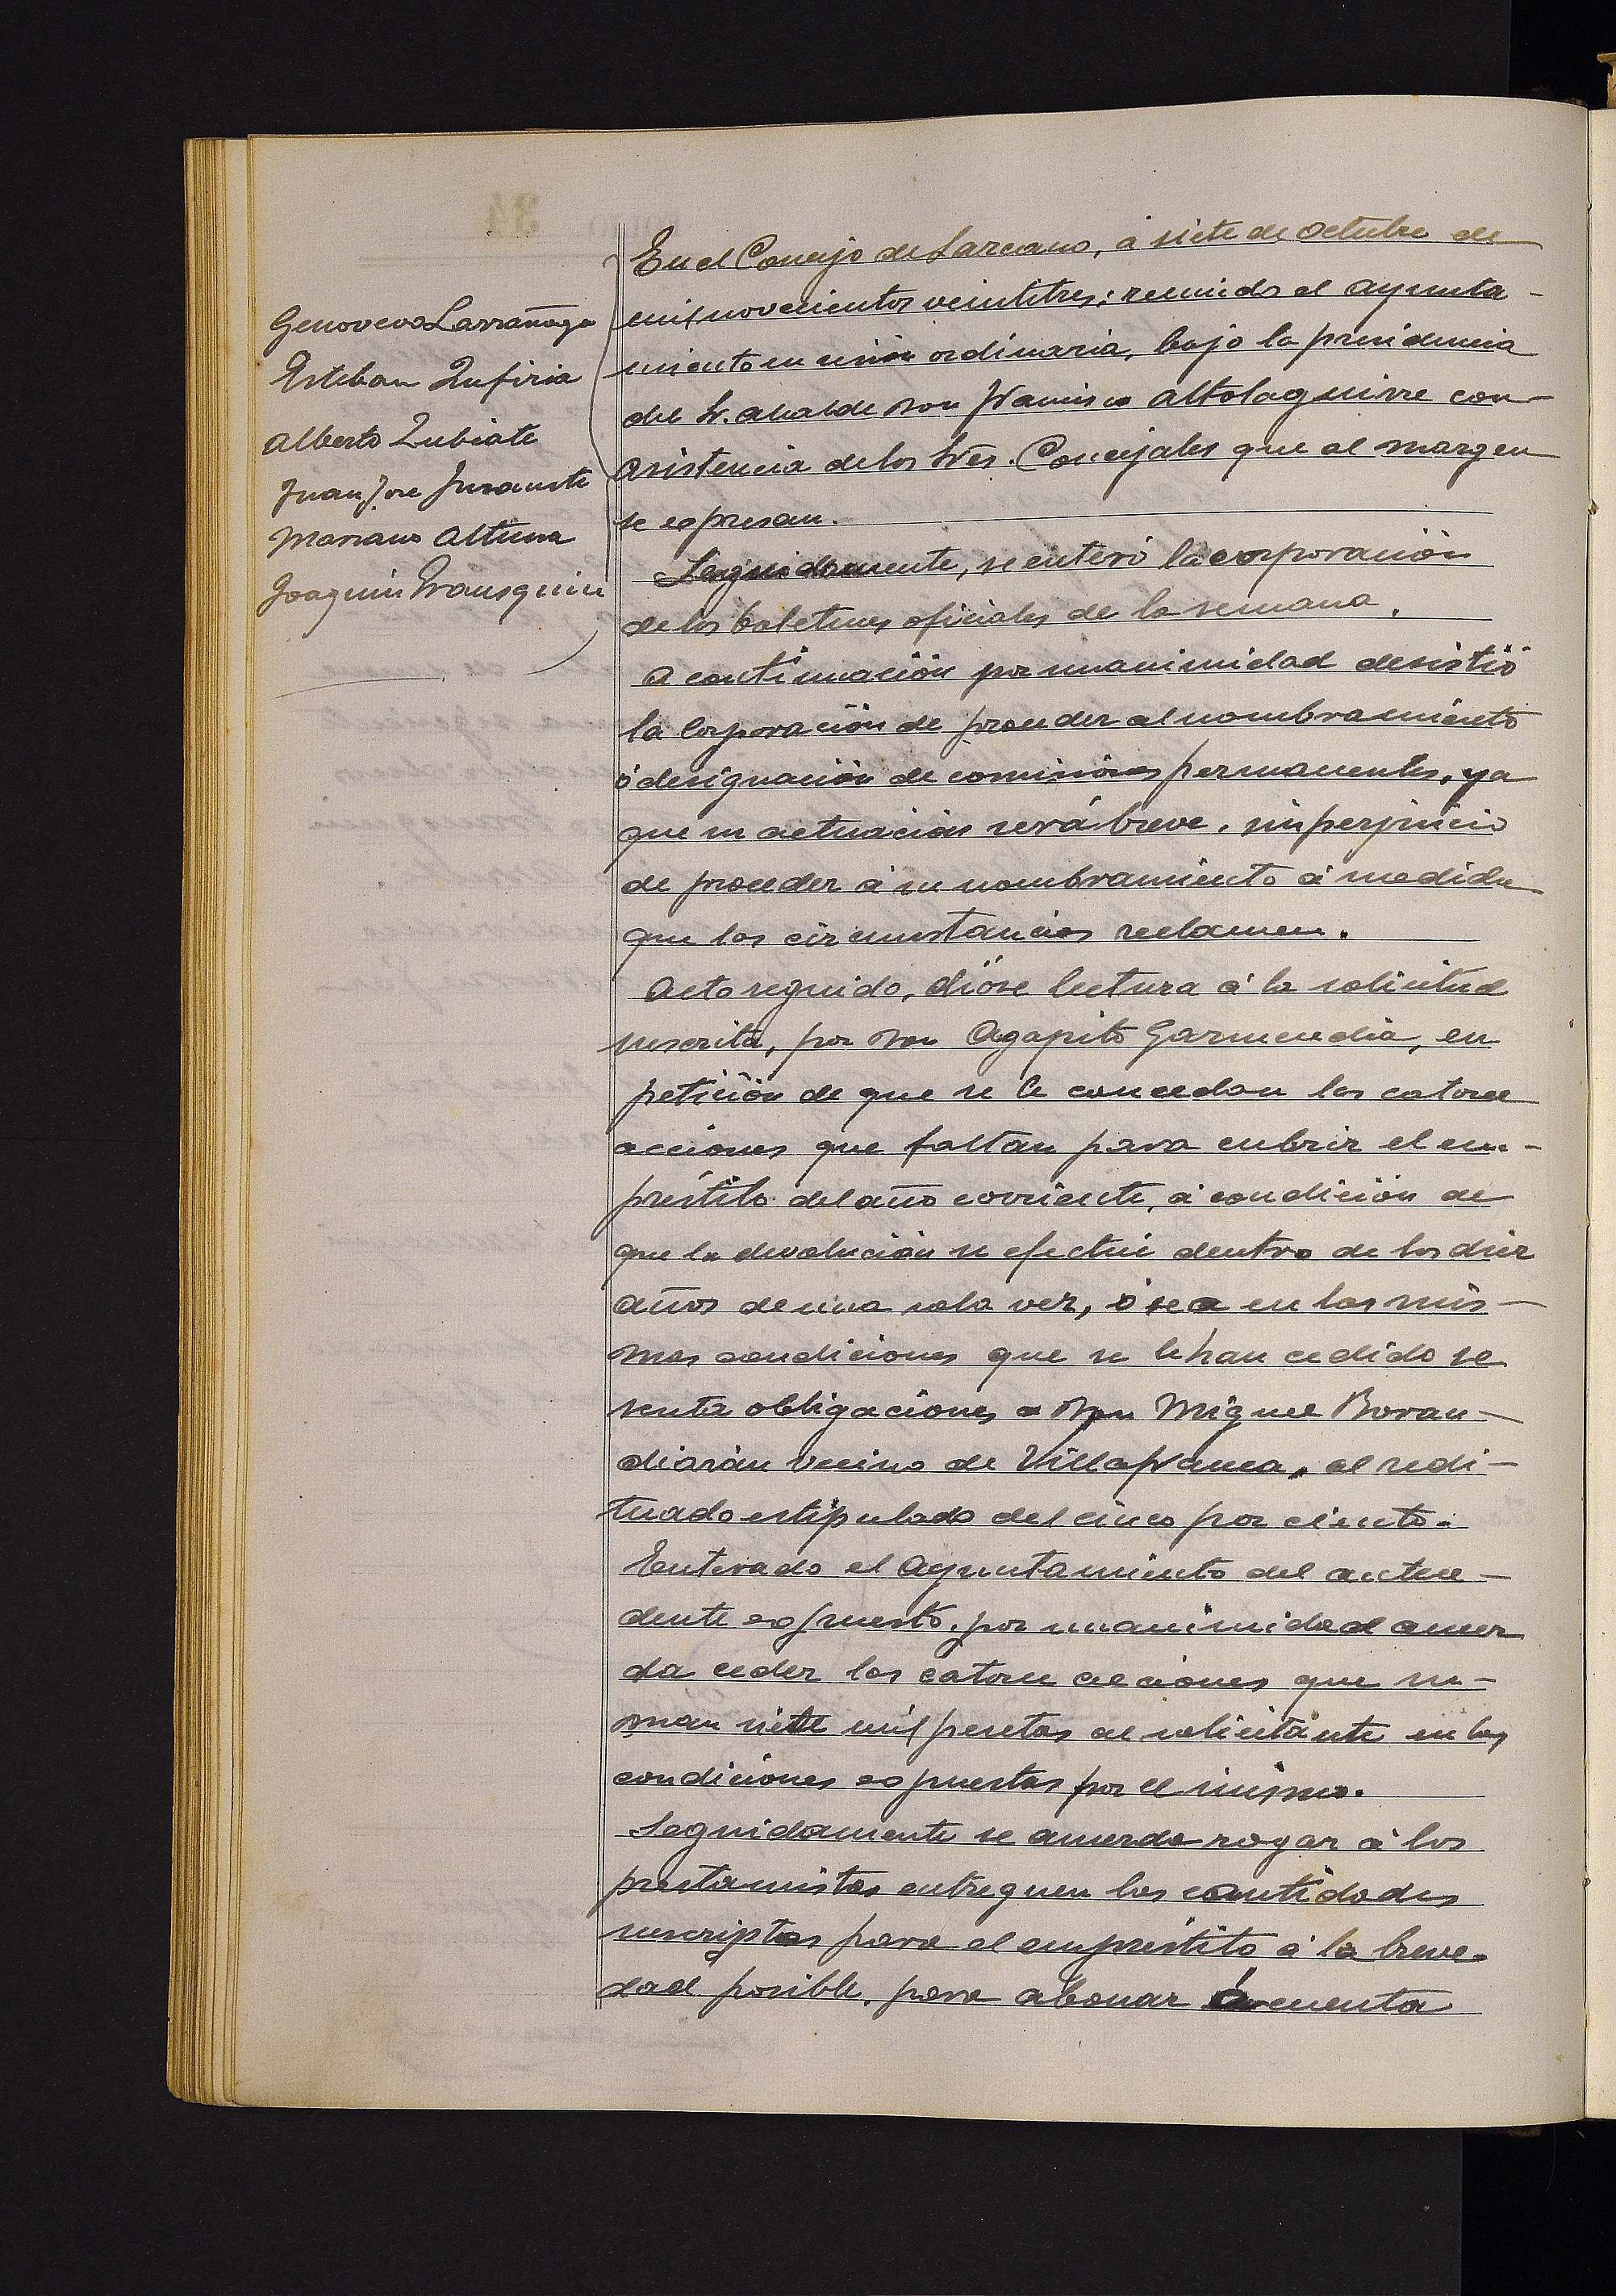 Genoveva Larrañaga
Esteban Zufiria
Alberto Zubiate
Juan José Insausti
Mariano Altuna
Joaquin Trausquin
En el Concejo de Lazcano, á siete de Octubre de
mil novecientos veintitres; reunido el ayunta-
miento en sesión ordinaria, bajo la presidencia
del Sr. Alcalde Don Francisco Altolaguirre con-
asistencia de los Sres. Concejales que al margen
se espresan.
Seguidamente, se enteró la corporación
de los boletines oficiales de la semana.
A continuación por unanimidad desistió
la Corporación de proceder al nombramiento
ó designación de comisiones permanentes, ya
que su actuación será breve, sin perjuicio
de proceder á su nombramiento á medida
que las circunstancias reclamen.
Acto seguido, dióse lectura á la solicitud
suscrita, por Don Agapito Garmendia, en
petición de que se le concedan las catorce
acciones que faltan para cubrir el em-
préstito del año corriente, á condición de
que la devolución se efectúe dentro de los diez
años de una sola vez, ó sea en las mis-
mas condiciones que se le han cedido se
senta obligaciones a Don Miguel Baran-
diarán vecino de Villafranca, al redi-
tuado estipulado del cinco por ciento.
Enterado el Ayuntamiento del antece-
dente espuesto, por unanimidad acuer
da ceder las catorce acciones que su-
man siete mil pesetas al solicitante en las
condiciones espuestas por el mismo.
Seguidamente se acuerda rogar á los
prestamistas entreguen las cantidades
suscriptas para el empréstito á la breve-
dad posible, para abonar á cuenta